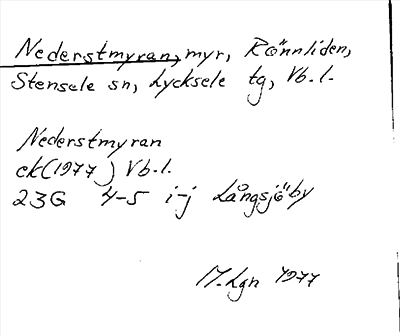 Nederstmyran, myr, Rönnliden,
Stensele sn, Lycksele tg, Vb.l.
Nederstmyran
ek(1977) Vb.l.
23G 4-5 i-j Långsjöby
M.Lgn 1977